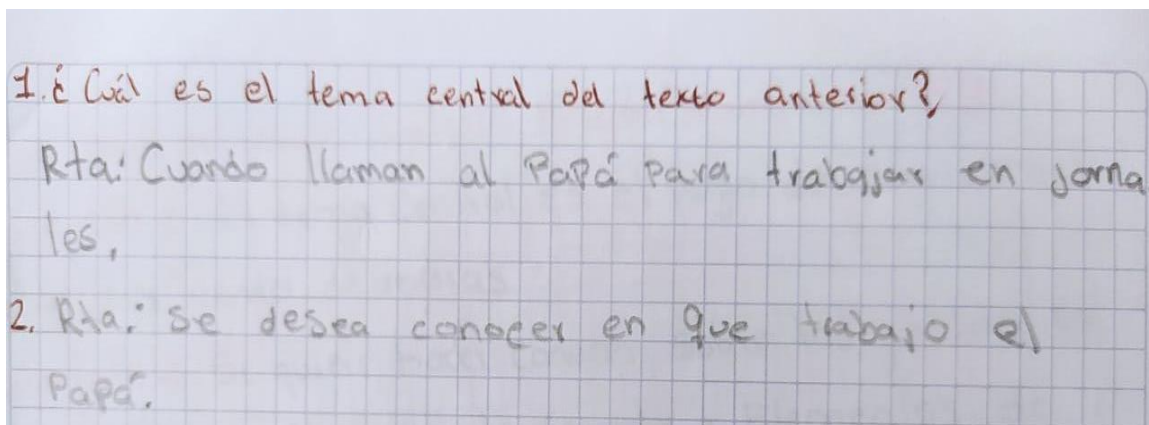 1. ¿Cuál es el tema central del texto anterior?
Rta: Cuando llaman al Papá para trabajar en jorna
les,
2. Rta: Se desea conocer en que trabajo el
Papá.